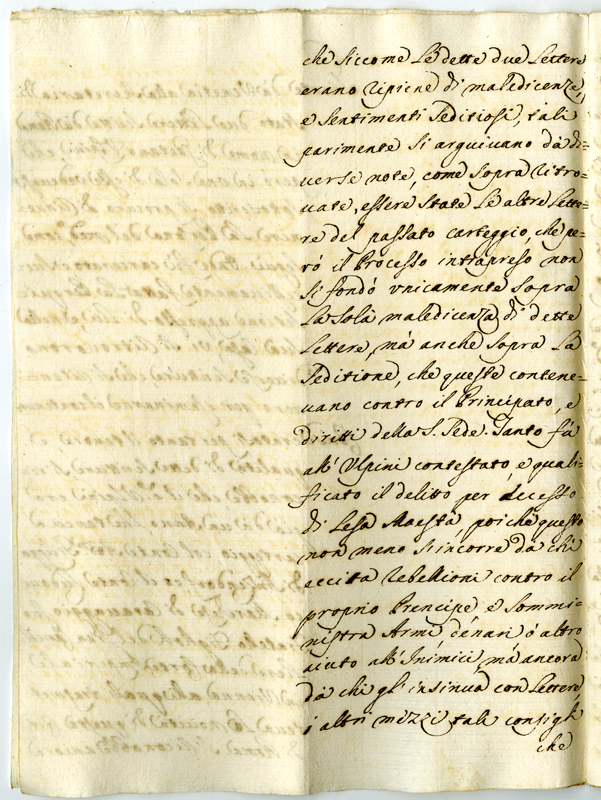 che siccome Le dette due Lettere
erano ripiene di maledicenze,
e Sentimenti Seditiosi, tali
parimente si arguivano da di=
verse note, come sopra ritro=
vate, essere state Le altre Lette=
re del passato carteggio, che pe=
rò il Processo intrapreso non
si fondò unicamente sopra
La sola maledicenza di dette
Lettere, mà anche sopra La
Seditione, che queste contene=
vano contro il Principato, e
diritti della S. Sede. Tanto fù
all' Vlpini contestato, e quali=
ficato il delitto per eccesso
di Lesa Maestà, poiche questo
non meno s'incorre da chi
eccita Rebellioni contro il
proprio Prencipe e sommi=
nistra Armi denari ò altro
aiuto all' Inimici, mà ancora
dà chi gl' insinua con Lettere
ò altri mezzi tali consigli
che